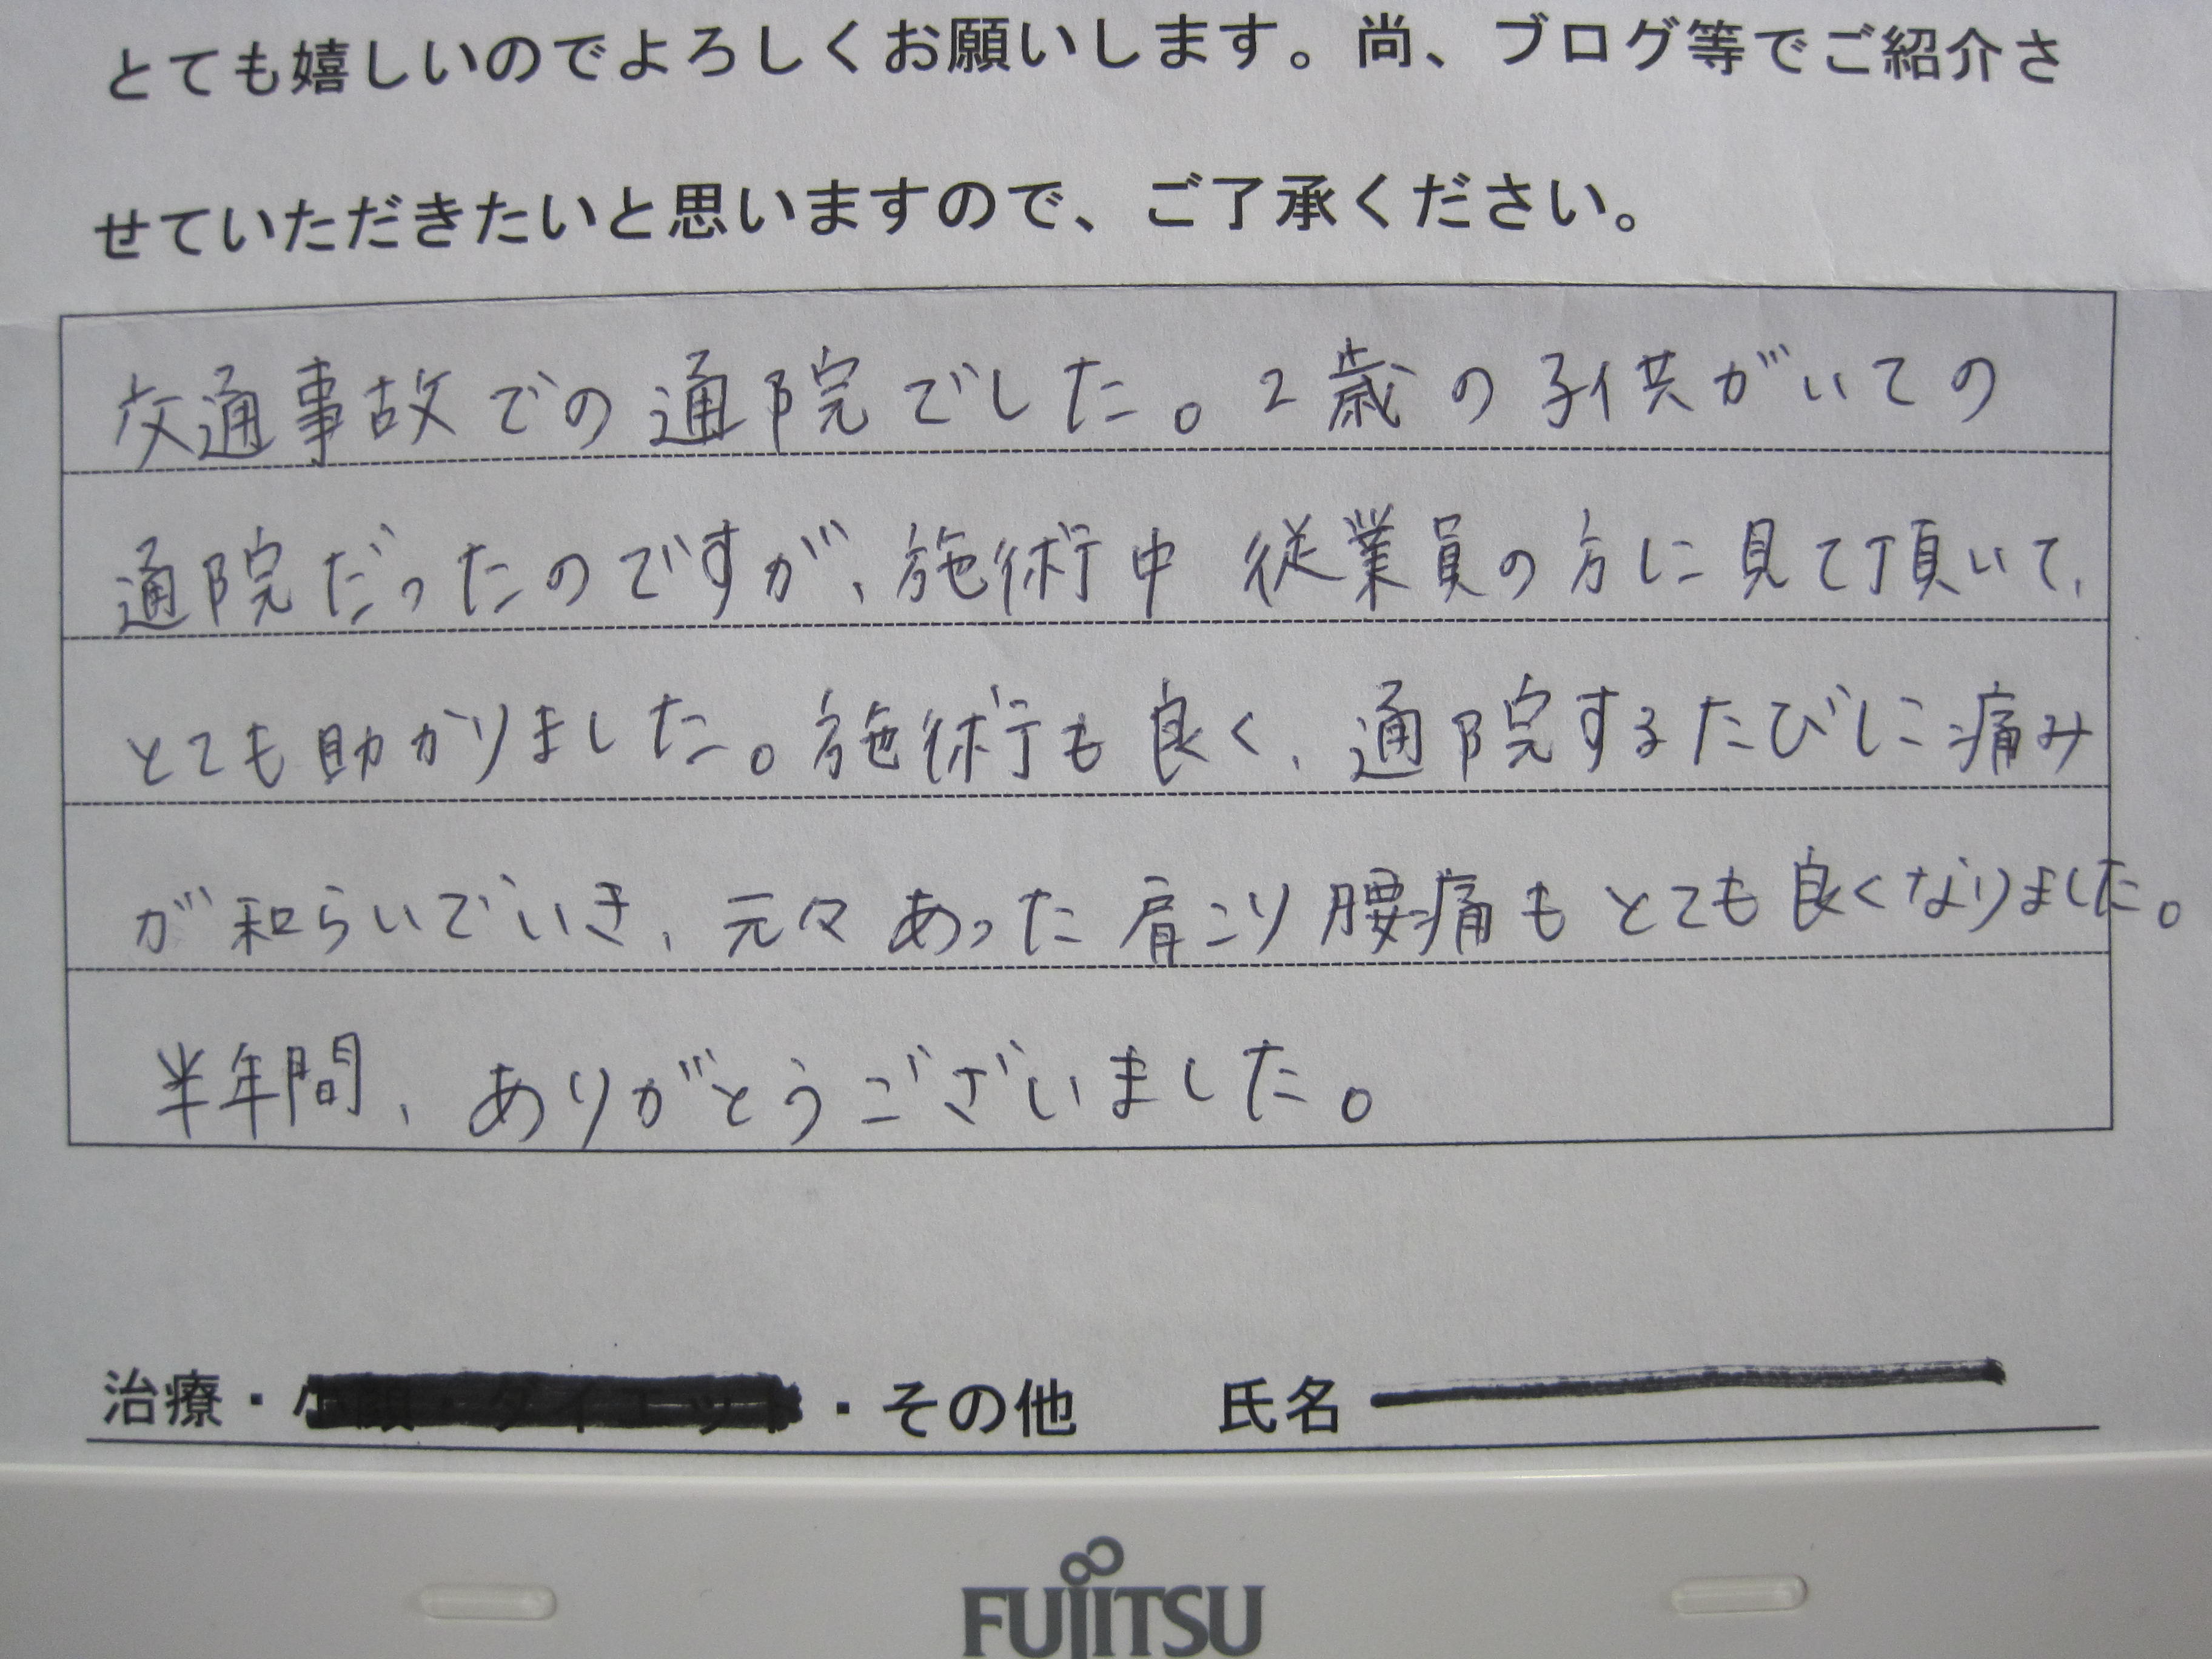 とても嬉しいのでよろしくお願いします。尚、ブログ等でご紹介さ
せていただきたいと思いますので、ご了承ください。
交通事故での通院でした。2歳の子供がいての
通院だったのですが、施術中 従業員の方に見て頂いて、
とても助かりました。施術も良く、通院するたびに痛み
が和らいでいき、元々あった肩こり腰痛もとても良くなりました。
半年間、ありがとうございました。
治療・小顔・ダイエット・その他 氏名
FUJITSU